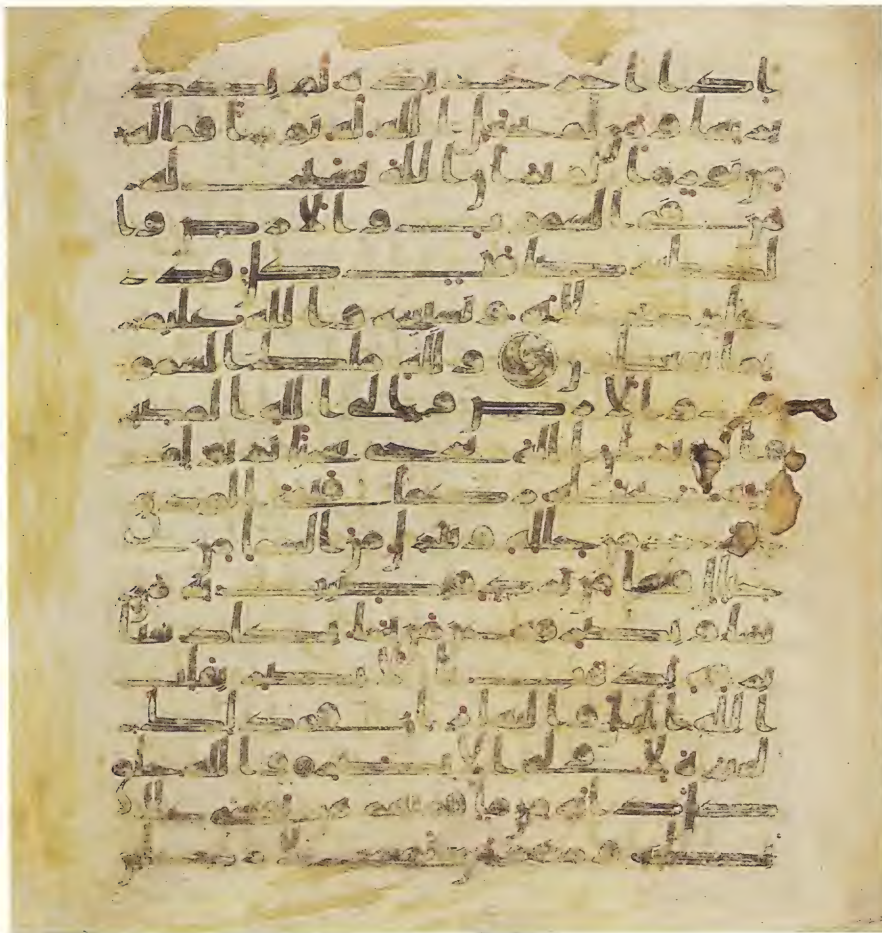 ض اذا اخرج يده لم يكد
يريها ومن لم يجعل الله له نورا فما له
من نور الم تر ان الله يسبح له
من في السموت والارض وا
لطير صفت كل قد
علم صلاته وتسبيحه والله عليم
بما يفعلون ولله ملك السمو
ت والارض والى الله المصير
الم تر ان الله يزجي سحابا ثم يولف
بينه ثم يجعله ركما فترى الود
ق يخرج من خلله وينزل من السما من
جبال فيها من برد فيصيب به من
يشا ويصرفه عن من يشا يكاد سنا
برقه يذهب بالابصر يقلب
الله اليل والنهار ان في ذلك
لعبرة لاولى الابصر والله خلق
كل دابة من ما فمنهم من يمشى على
بطنه ومنهم من يمشى على ر